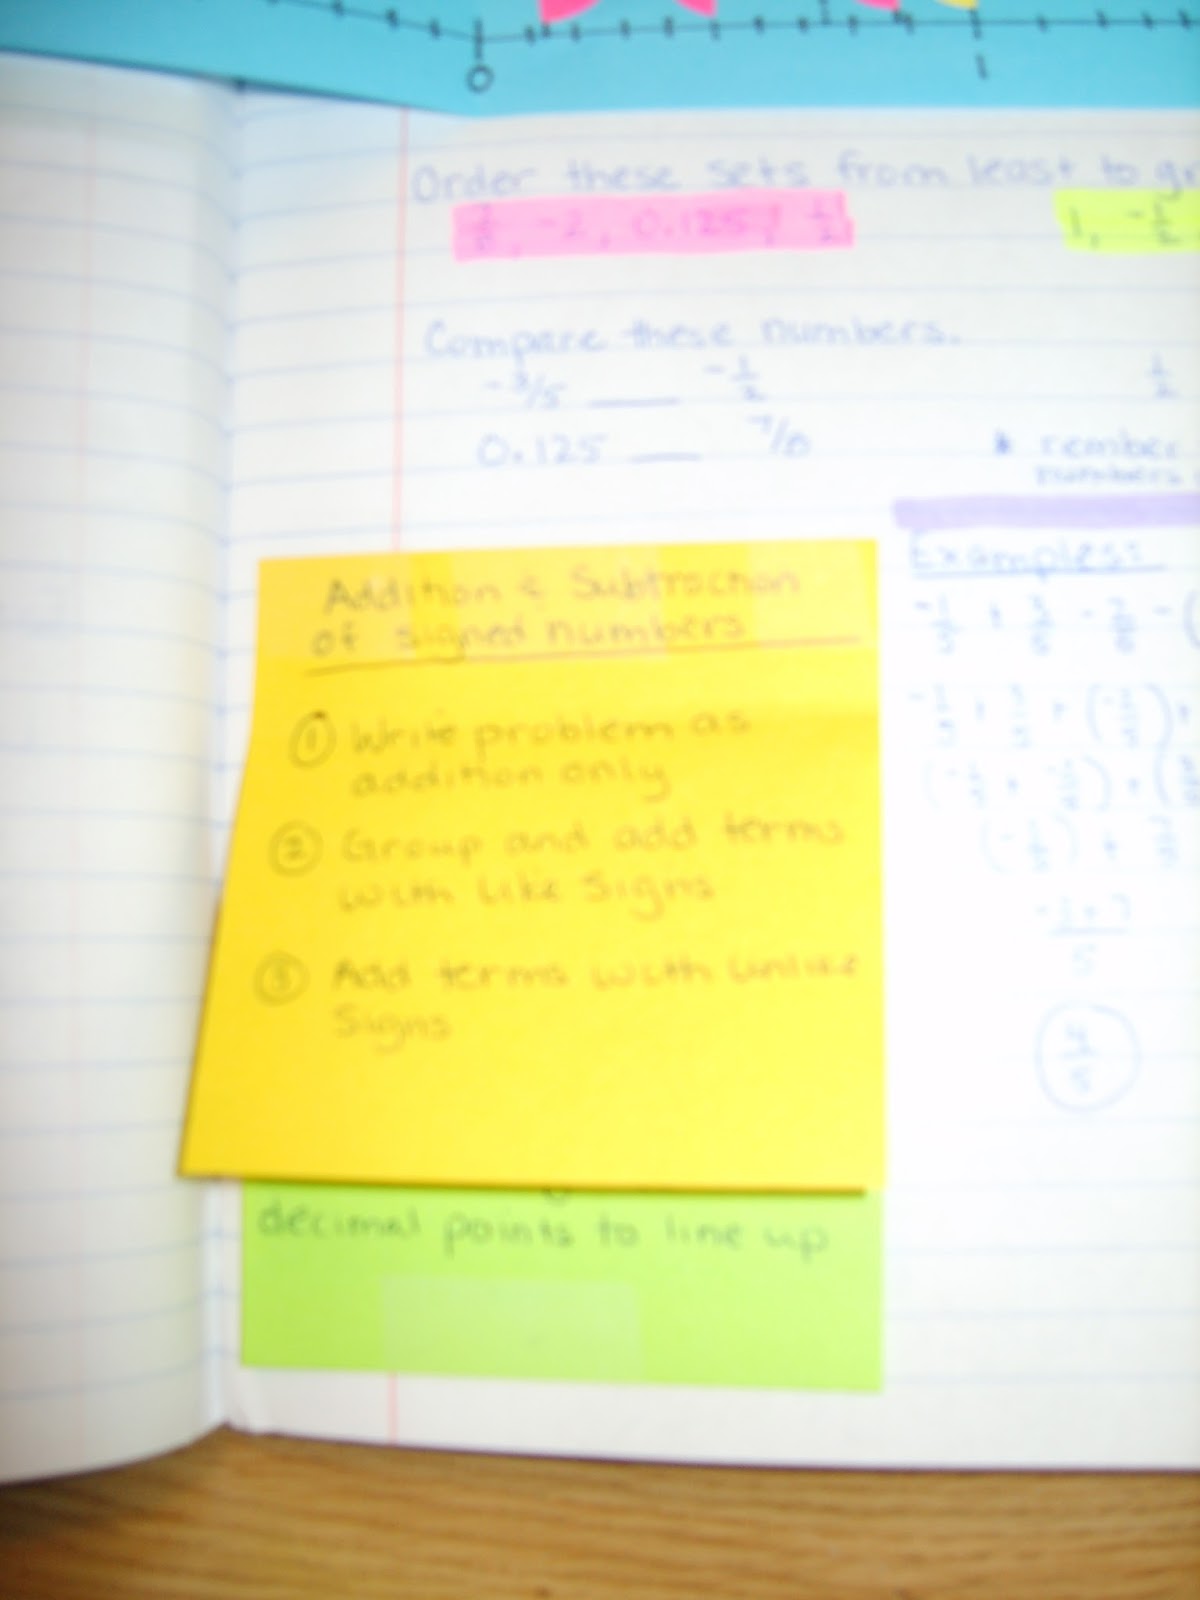 0 1
Order these sets from least to gr
, -2, 0.125, 1/2
1, -1/2
Compare these numbers.
-3/5 ____ -1/2
1/2
0.125 ____ 7/8
* rember
numbers
Examples:
Addition & Subtraction
of signed numbers
① Write problem as
addition only
② Group and add terms
with like signs
③ Add terms with unlike
signs
-1+7
5
4/5
decimal points to line up